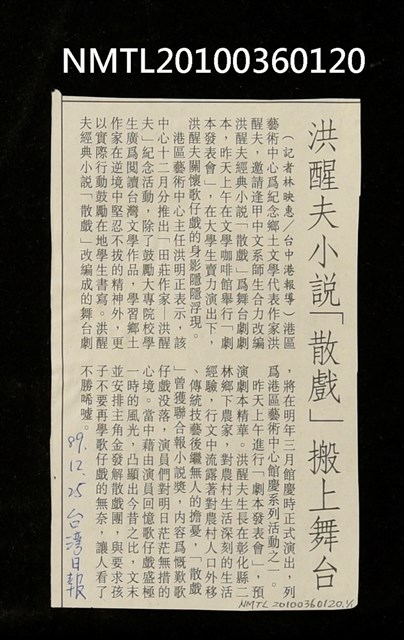 NMTL20100360120
洪醒夫小說「散戲」搬上舞台
（記者林映惠／台中港報導）港區
藝術中心爲紀念鄉土文學代表作家洪
醒夫，邀請逢甲中文系師生合力改編
洪醒夫經典小說「散戲」爲舞台劇劇
本，昨天上午在文學咖啡館舉行「劇
本發表會」，在大學生賣力演出下，
洪醒夫關懷歌仔戲的身影隱隱浮現。
港區藝術中心主任洪明正表示，該
中心十二月分推出「田莊作家—洪醒
夫」紀念活動，除了鼓勵大專院校學
生廣爲閱讀台灣文學作品，學習鄉土
作家在逆境中堅忍不拔的精神外，更
以實際行動鼓勵在地學生書寫。洪醒
夫經典小說「散戲」改編成的舞台劇
，將在明年三月館慶時正式演出，列
爲港區藝術中心館慶系列活動之一。
昨天上午進行「劇本發表會」，預
演劇本精華。洪醒夫生長在彰化縣二
林鄉下農家，對農村生活深刻的生活
經驗，行文中流露著對農村人口外移
、傳統技藝後繼無人的擔憂，「散戲
」曾獲聯合報小說獎，內容爲慨歎歌
仔戲没落，演員們對明日茫茫無措的
心境。當中藉由演員回憶歌仔戲盛極
一時的風光，凸顯出今昔之比，文末
並安排主角金發解散戲團，與要求孩
子不要再學歌仔戲的無奈，讓人看了
不勝唏噓。
89.12.25 台灣日報
NMTL20100360120,1/1